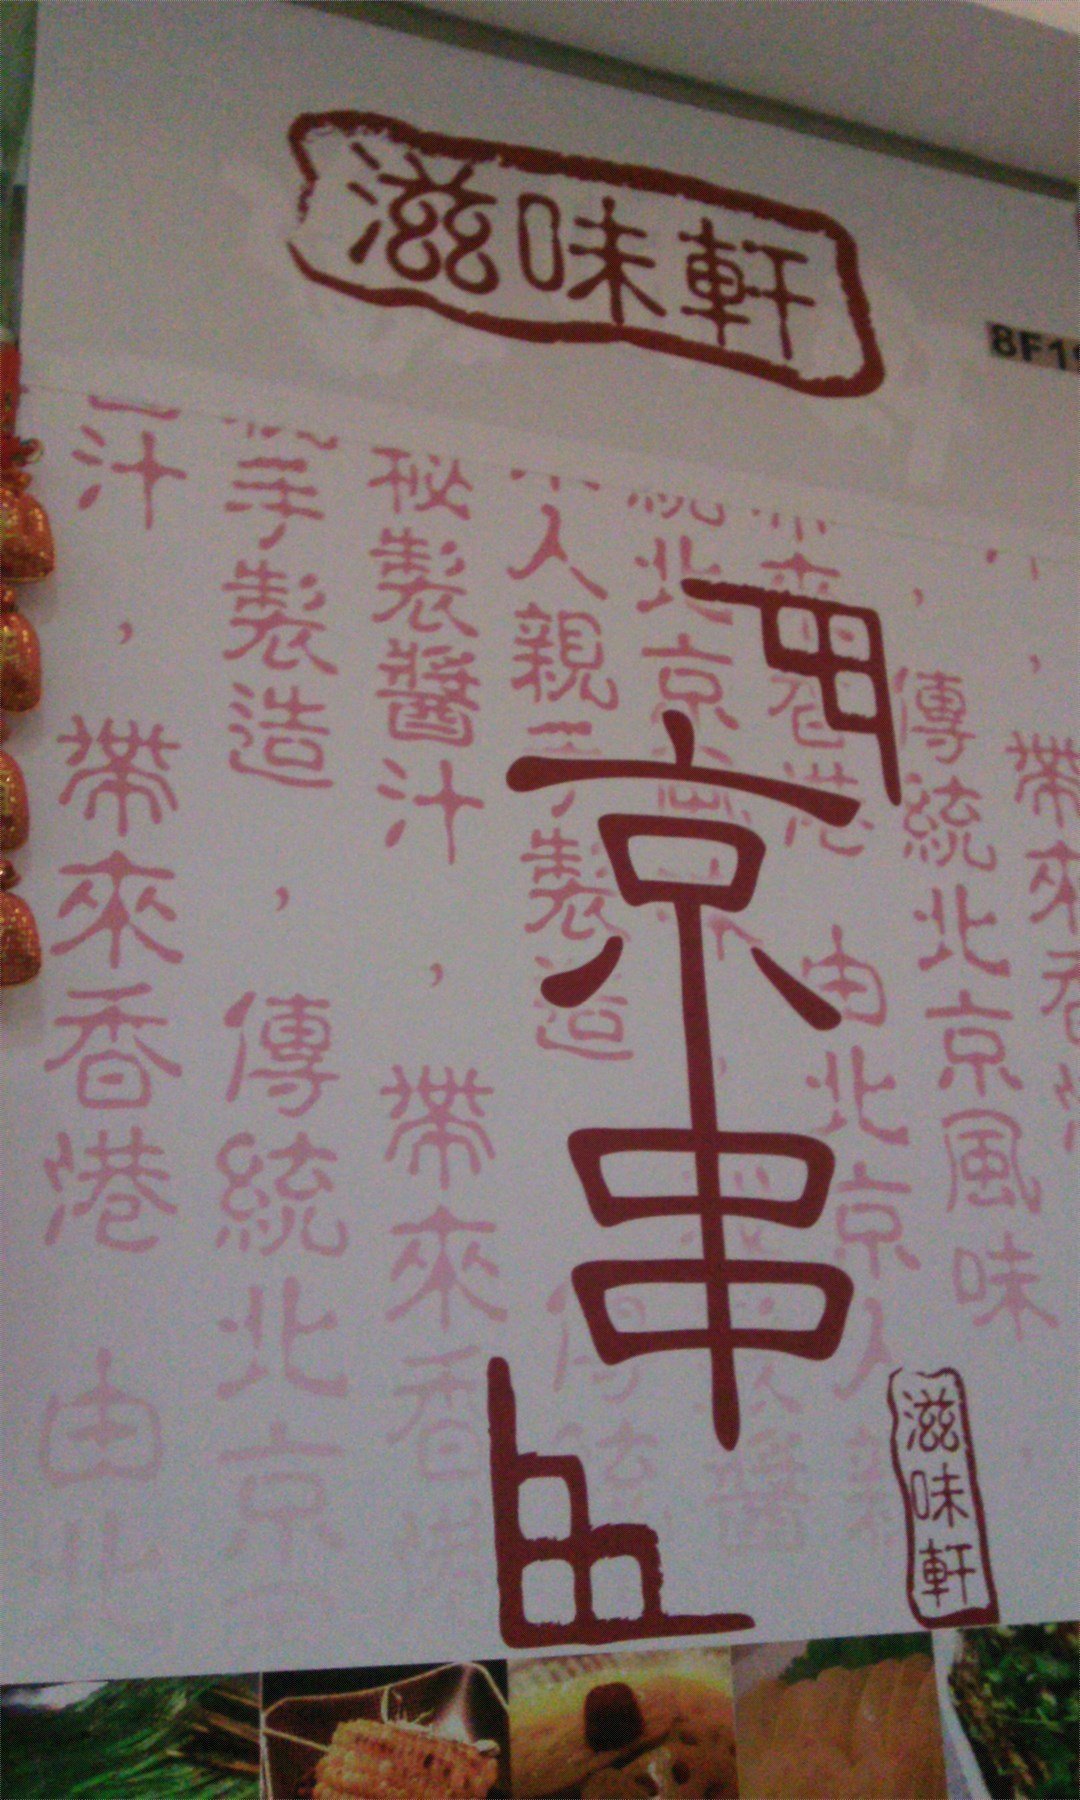 滋味軒
8F1
京串
帶來香
傳統北京風味
來香港 由北京人親
統北京
人親手製造
秘製醬汁，帶來香
手製造，傳統北京
汁，帶來香港 由北
滋味軒